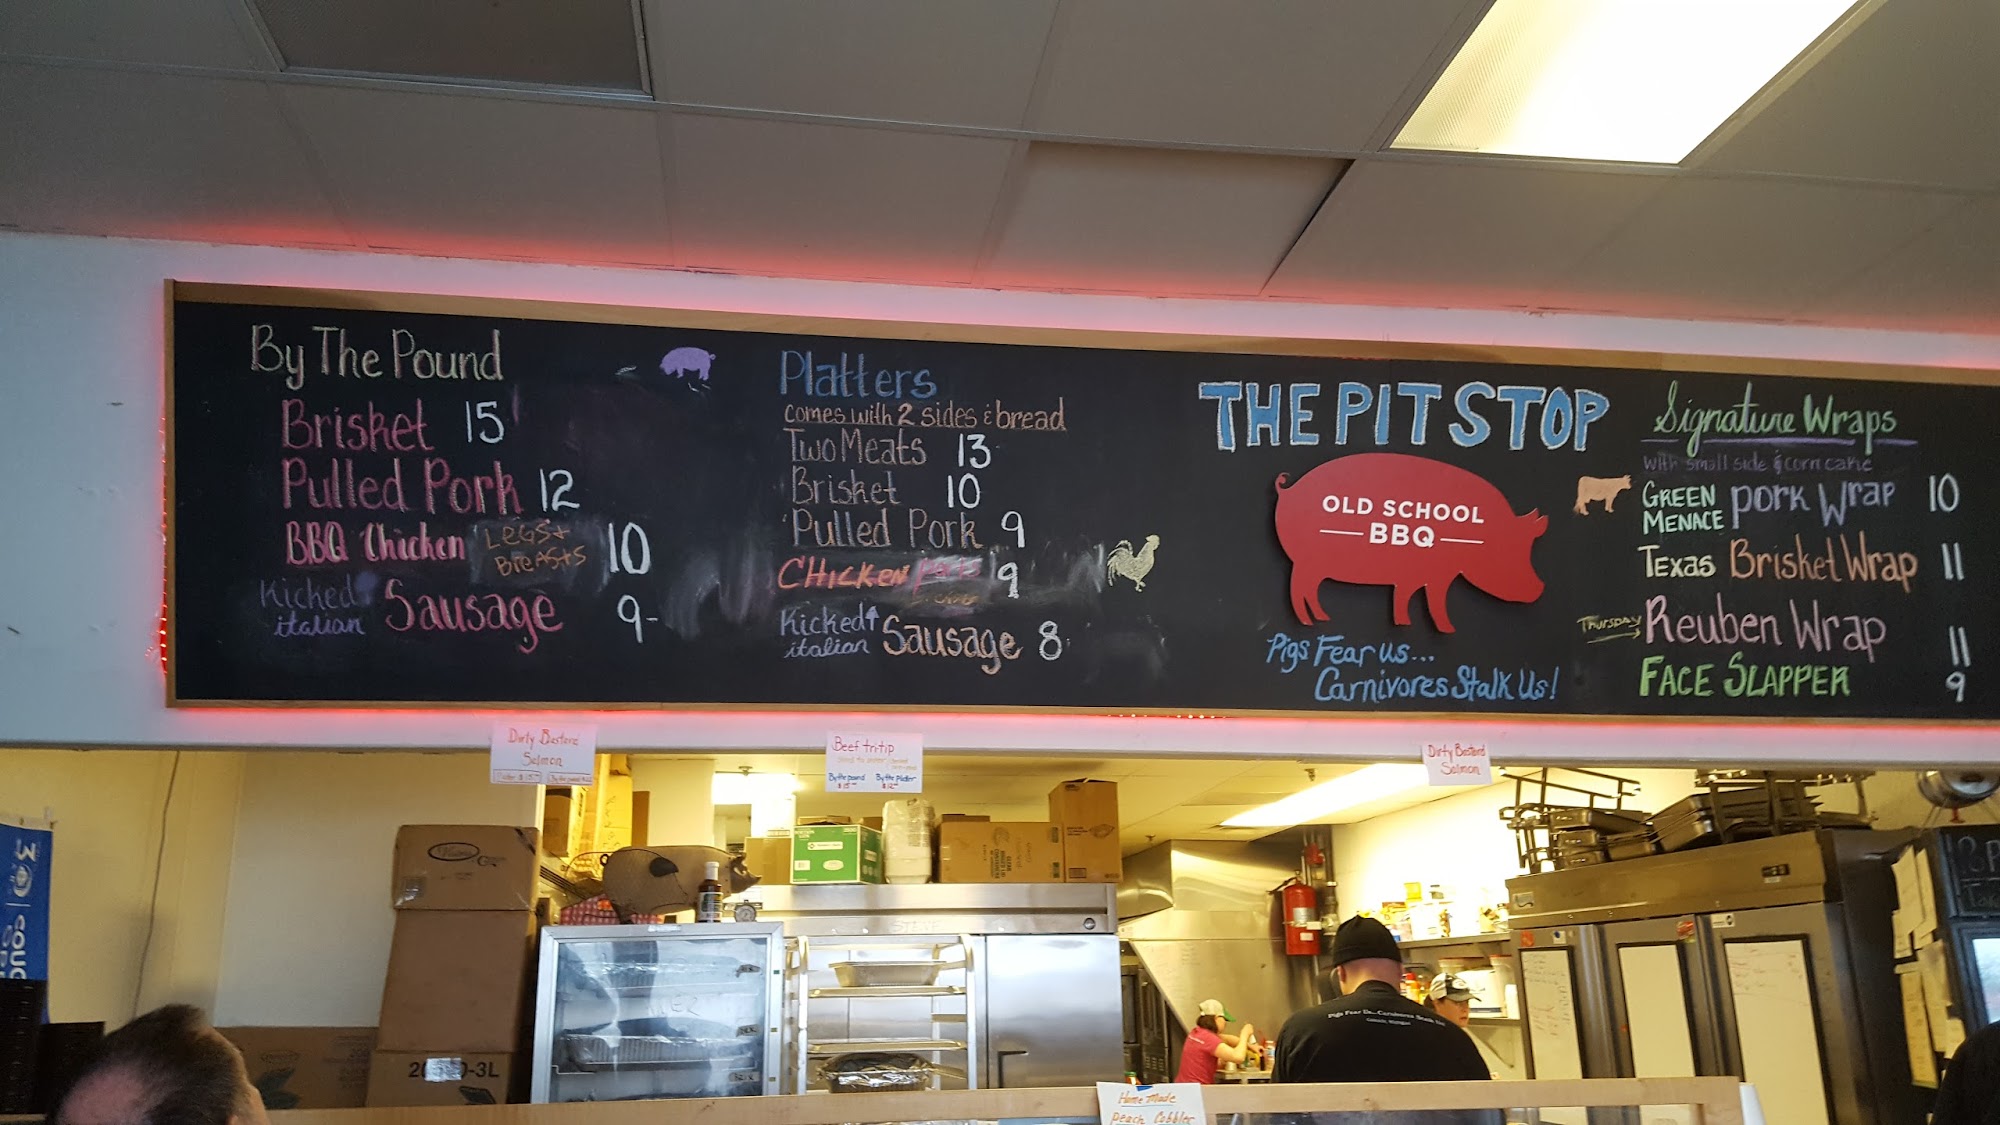 By The Pound
Brisket 15
Pulled Pork 12
BBQ Chicken Legs + Breasts 10
Kicked italian Sausage 9-
Platters
comes with 2 sides & bread
Two Meats 13
Brisket 10
Pulled Pork 9
CHICKEN 9
Kicked italian Sausage 8
THE PIT STOP
OLD SCHOOL
BBQ
Pigs Fear us...
Carnivores Stalk Us!
Signature Wraps
with small side & corn cake
GREEN MENACE pork Wrap 10
Texas Brisket Wrap 11
Thursday Reuben Wrap 11
FACE SLAPPER 9
Dirty Bastard
Salmon
Beef tri-tip
By the pound By the platter
Dirty Bastard
Salmon
Home Made
Peach Cobbler